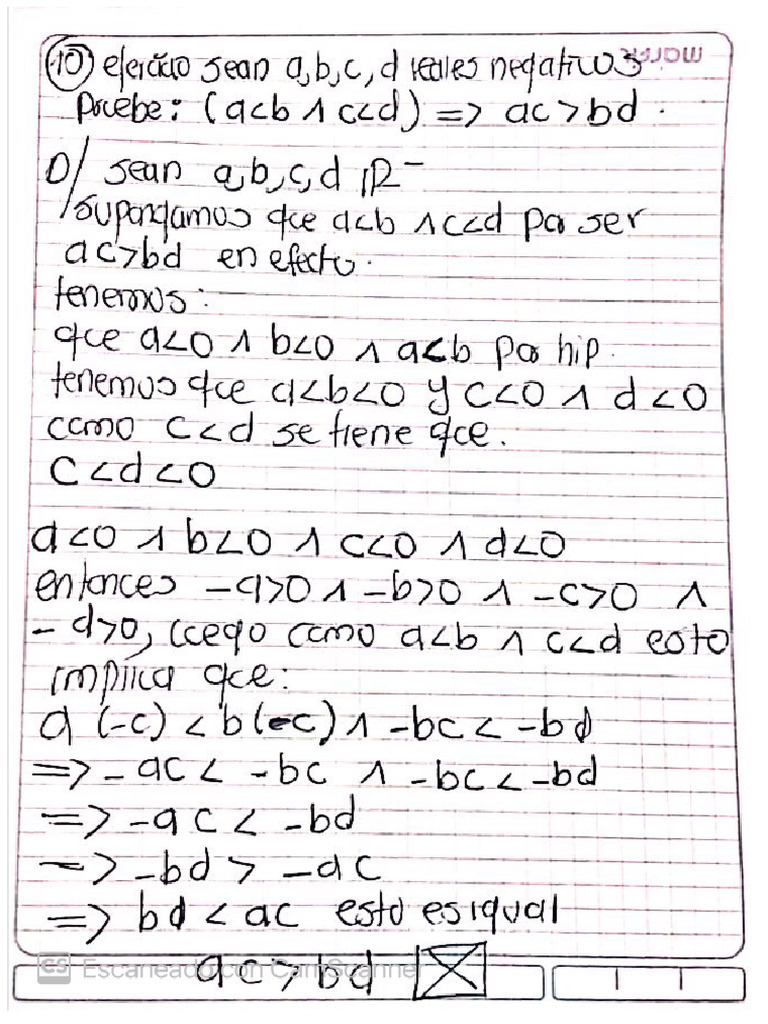 10 ejercicio sean a,b,c,d reales negativos
Pruebe: (a<b ∧ c<d) => ac>bd.
D/ sean a,b,c,d ℝ⁻
supongamos que a<b ∧ c<d por ser
ac>bd en efecto.
tenemos:
que a<0 ∧ b<0 ∧ a<b por hip.
tenemos que a<b<0 y c<0 ∧ d<0
como c<d se tiene que.
c<d<0
a<0 ∧ b<0 ∧ c<0 ∧ d<0
entonces -a>0 ∧ -b>0 ∧ -c>0 ∧
-d>0, luego como a<b ∧ c<d esto
implica que:
a(-c) < b(-c) ∧ -bc < -bd
=> -ac < -bc ∧ -bc < -bd
=> -ac < -bd
=> -bd > -ac
=> bd < ac esto es igual
ac > bd
CS Escaneado con CamScanner